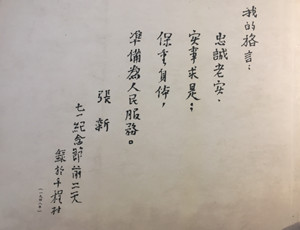 我的格言：
忠誠老实．
实事求是；
保重身体，
準備為人民服務。
張新
七一紀念節前二天
錄於千程社